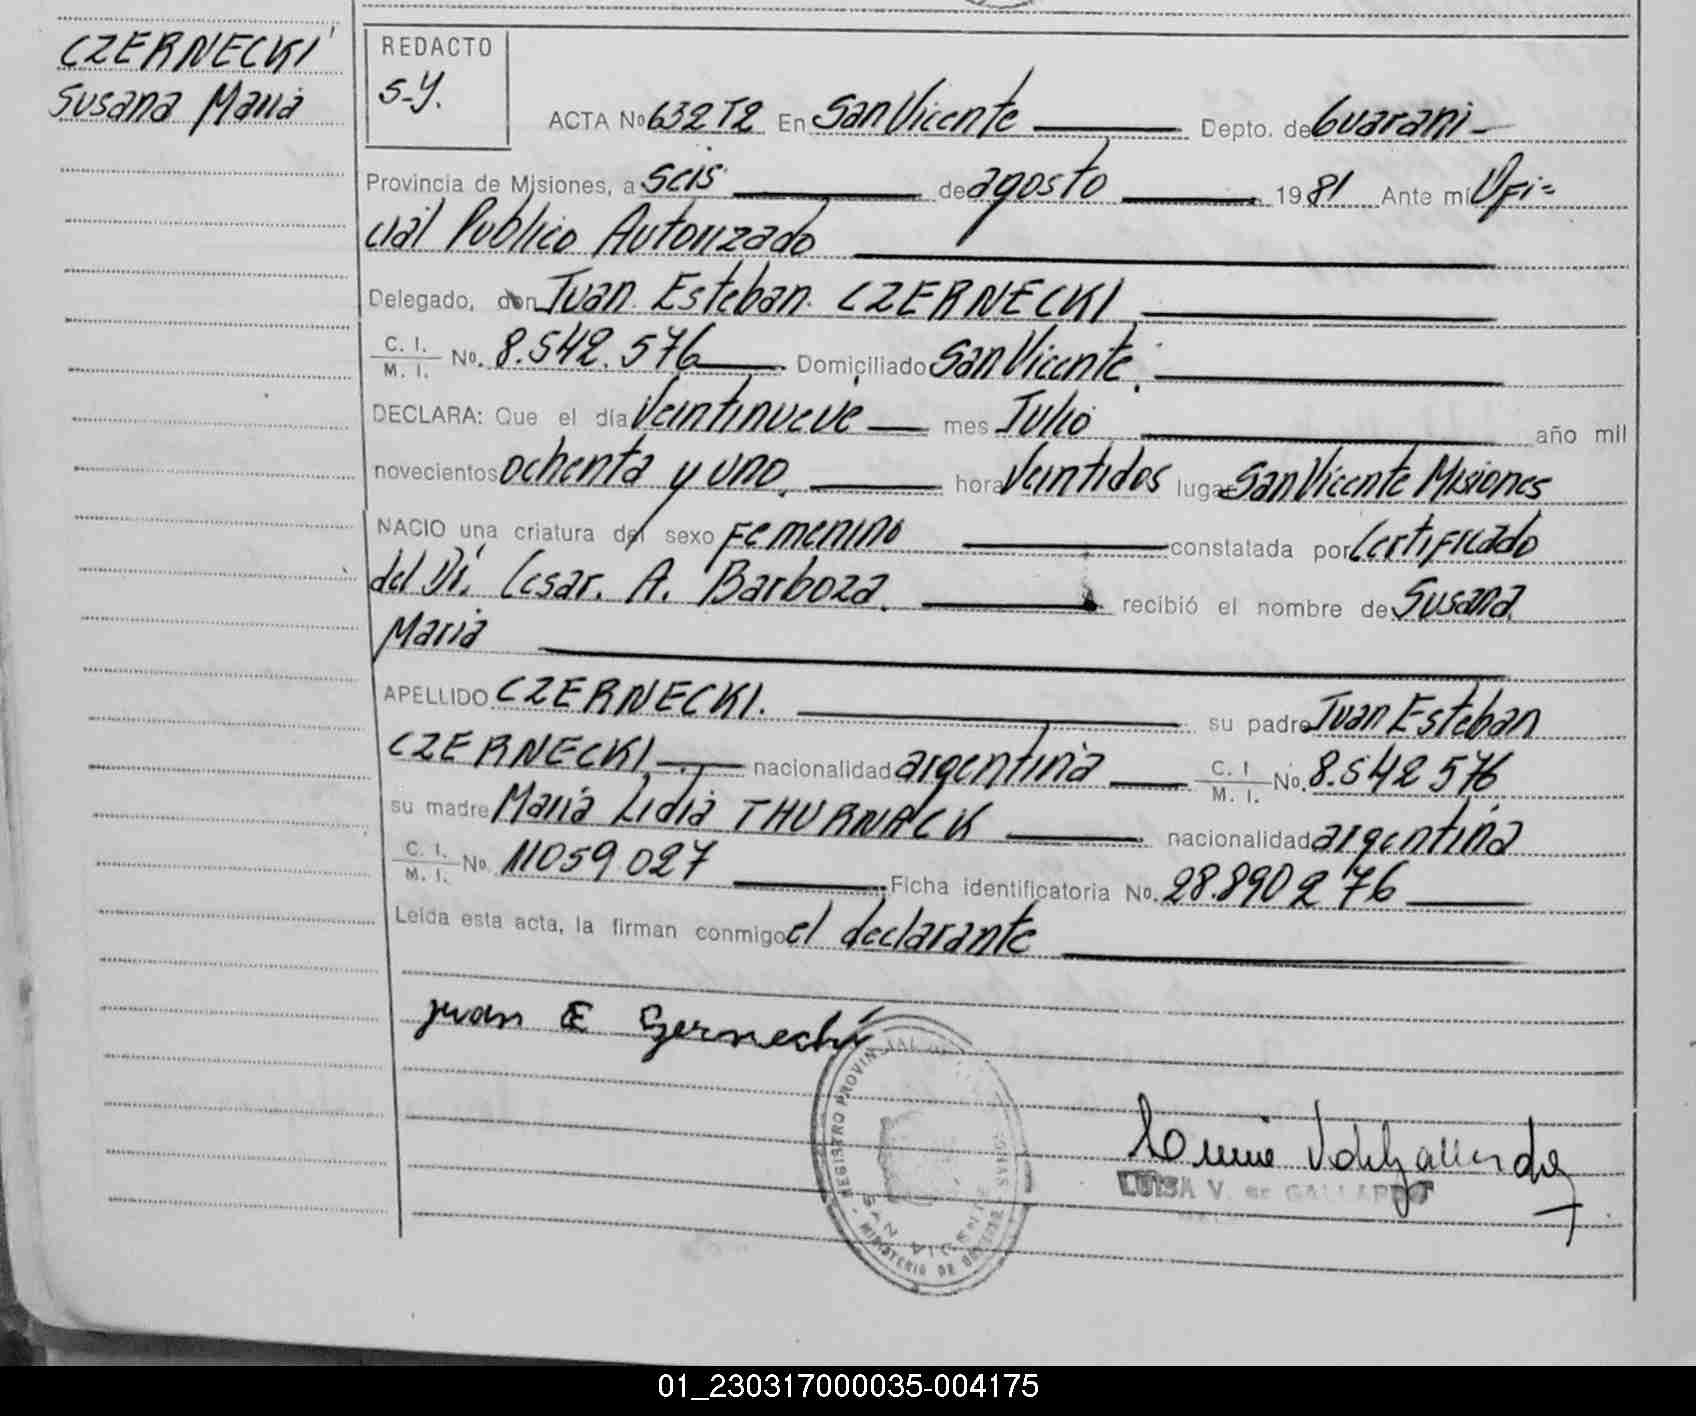 CZERNECKI
Susana Maria
REDACTO
S-Y.
ACTA No 632 T2 En San Vicente Depto. de Guarani
Provincia de Misiones, a seis de agosto 1981 Ante mi Ofi=
cial Publico Autorizado
Delegado, don Juan Esteban CZERNECKI
C. I.
M. I. No. 8.542.576 Domiciliado San Vicente.
DECLARA: Que el día Veintinueve mes Julio año mil
novecientos ochenta y uno. hora Veintidos lugar San Vicente Misiones
NACIO una criatura del sexo Femenino constatada por Certificado
del Dr. Cesar. A. Barboza. recibió el nombre de Susana
Maria
APELLIDO CZERNECKI. su padre Juan Esteban
CZERNECKI nacionalidad argentina C. I. M. I. No. 8.542 576
su madre Maria Lidia THURNACK nacionalidad argentina
C. I. M. I. No. 11059 027 Ficha identificatoria No. 28.890 276
Leída esta acta, la firman conmigo el declarante
Juan E
REGISTRO PROVINCIAL DE LAS PERSONAS
SAN VICENTE
MINISTERIO DE GOBIERNO
LUISA V. de GALLARDO
01_230317000035-004175